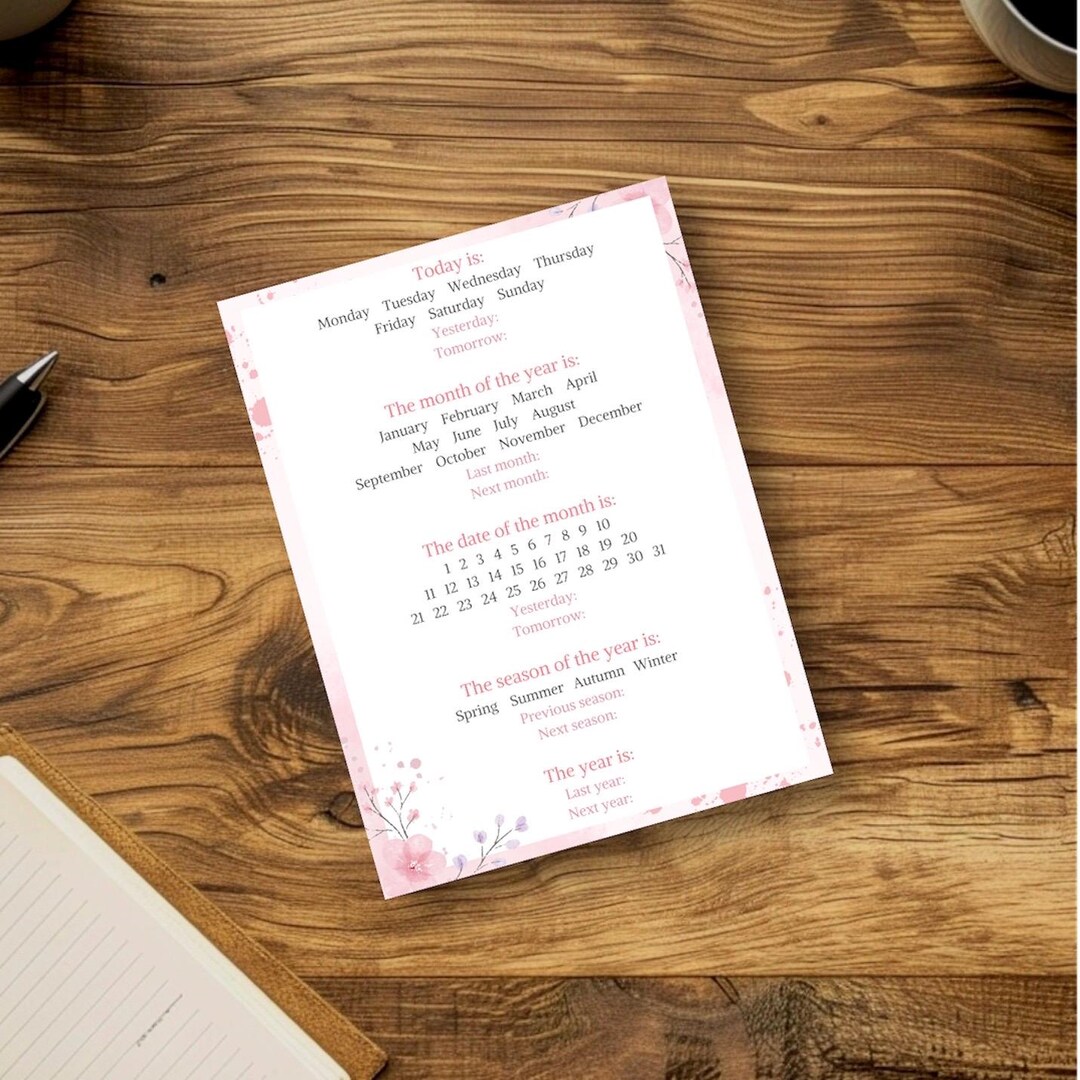 Today is:
Monday Tuesday Wednesday Thursday
Friday Saturday Sunday
Yesterday:
Tomorrow:
The month of the year is:
January February March April
May June July August
September October November December
Last month:
Next month:
The date of the month is:
1 2 3 4 5 6 7 8 9 10
11 12 13 14 15 16 17 18 19 20
21 22 23 24 25 26 27 28 29 30 31
Yesterday:
Tomorrow:
The season of the year is:
Spring Summer Autumn Winter
Previous season:
Next season:
The year is:
Last year:
Next year: